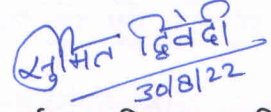 सुमित द्विवेदी
30/8/22